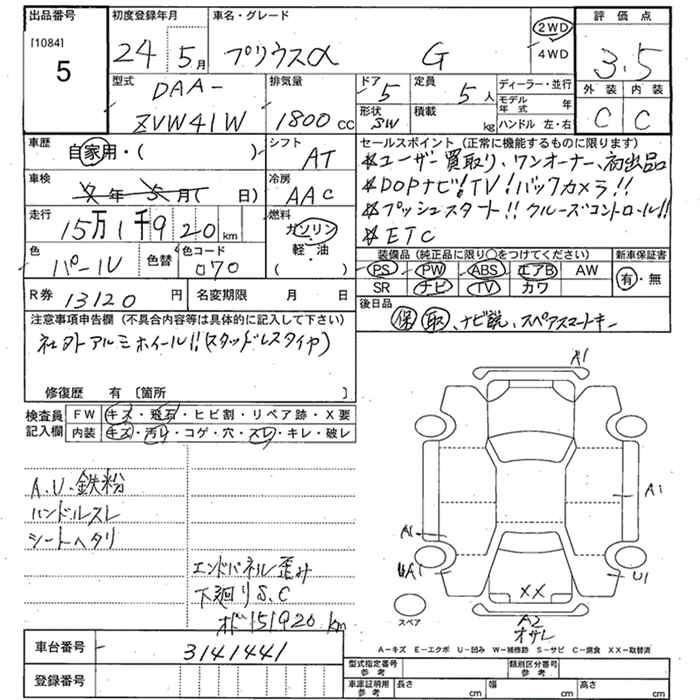 出品番号 初度登録年月 車名・グレード 評価点
[1084] 5
24年 5月 プリウスα G 2WD 4WD 3.5
型式 排気量 ドア 定員 ディーラー・並行 外装 内装
DAA- 5 5人 モデル年式 年 C C
ZVW41W 1800cc 形状 SW 積載 kg ハンドル 左・右
車歴 自家用・( ) シフト AT セールスポイント (正常に機能するものに限ります)
*ユーザー買取り、ワンオーナー、初出品
車検 7年 5月( 日) 冷房 AAC *DOPナビ!TV!バックカメラ!!
走行 15万1千920km 燃料 ガソリン 軽・油 ( ) *プッシュスタート!! クルーズコントロール!!
*ETC
色 パール 色替 色コード 070 装備品 (純正品に限り○をつけてください) 新車保証書
PS PW ABS エアB AW 有・無
SR ナビ TV カワ
R券 13120円 名変期限 月 日 後日品
保 取、ナビ説、スペアスマートキー
注意事項申告欄 (不具合内容等は具体的に記入して下さい)
社外アルミホイール!!(スタッドレスタイヤ)
修復歴 有 〔箇所
検査員記入欄 FW キズ・飛石・ヒビ割・リペア跡・X要
内装 キズ・汚れ・コゲ・穴・スレ・キレ・破レ
A.U.鉄粉
ハンドルスレ
シートヘタリ
エンドパネル歪み
下廻りS.C
オド151920km
A1
A1
A1
U1
XX
A2
オサレ
スペア
A-キズ E-エクボ U-凹み W-補修跡 S-サビ C-腐食 XX-取替済
車台番号 3141441
登録番号
型式指定番号 参考 類別区分番号 参考
車庫証明用 参考 長さ cm 幅 cm 高さ cm